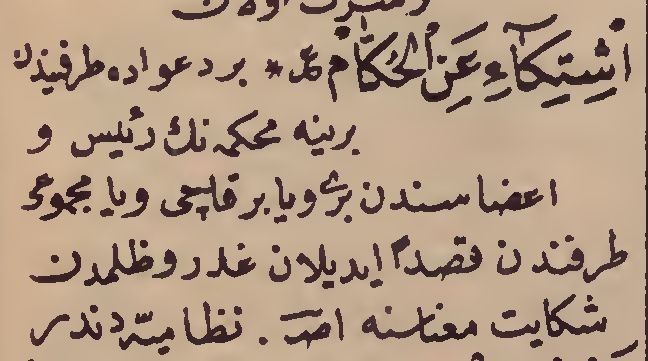 اِشْتِكَآءِ عَنِ الْحُكَّامْ * بر دعواده طرفیندن
برینه محكمه نك رئیس و
اعضا سندن بری ویا بر قاچی ویا مجموعی
طرفندن قصداً ایدیلان غدر وظلمدن
شكایت معناسنه . نظامیّه دندر